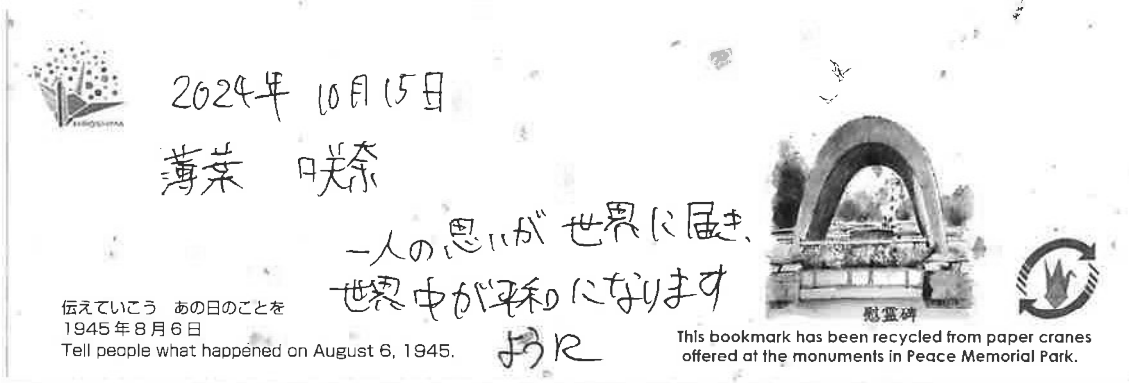 HIROSHIMA
2024年 10月15日
薄葉 咲奈
一人の思いが世界に届き、
世界中が平和になります
ように
伝えていこう あの日のことを
1945年8月6日
Tell people what happened on August 6, 1945.
慰霊碑
This bookmark has been recycled from paper cranes
offered at the monuments in Peace Memorial Park.